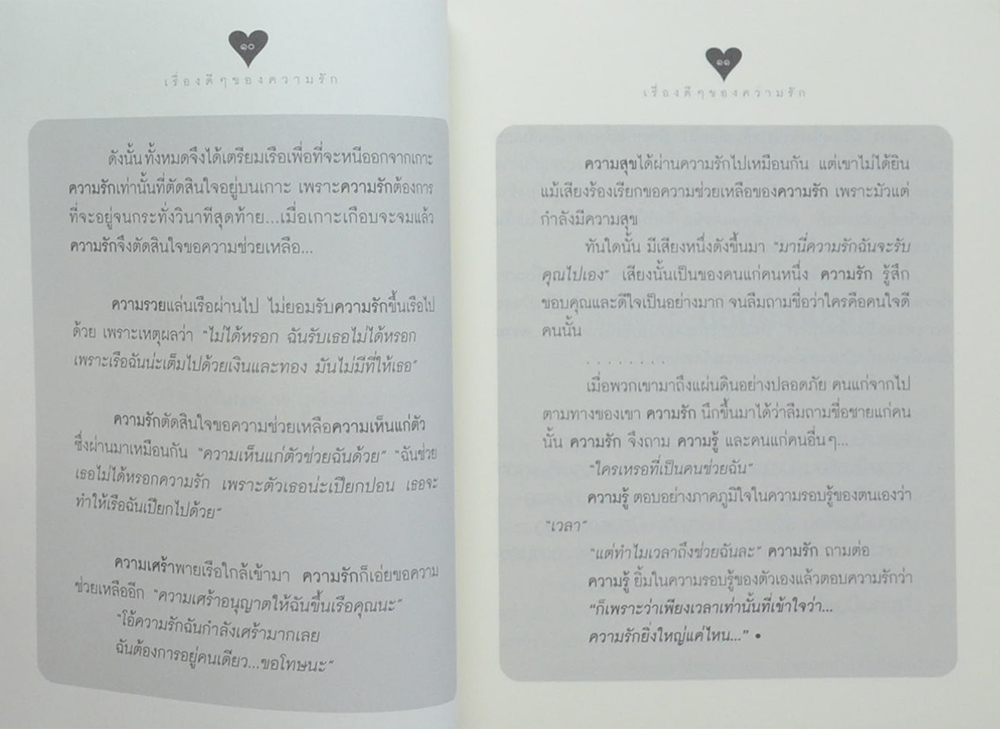 ๑๐
เรื่องดีๆของความรัก
ดังนั้น ทั้งหมดจึงได้เตรียมเรือเพื่อที่จะหนีออกจากเกาะ
ความรักเท่านั้นที่ตัดสินใจอยู่บนเกาะ เพราะความรักต้องการ
ที่จะอยู่จนกระทั่งวินาทีสุดท้าย...เมื่อเกาะเกือบจะจมแล้ว
ความรักจึงตัดสินใจขอความช่วยเหลือ...
ความรวยแล่นเรือผ่านไป ไม่ยอมรับความรักขึ้นเรือไป
ด้วย เพราะเหตุผลว่า "ไม่ได้หรอก ฉันรับเธอไม่ได้หรอก
เพราะเรือฉันน่ะเต็มไปด้วยเงินและทอง มันไม่มีที่ให้เธอ"
ความรักตัดสินใจขอความช่วยเหลือความเห็นแก่ตัว
ซึ่งผ่านมาเหมือนกัน "ความเห็นแก่ตัวช่วยฉันด้วย" "ฉันช่วย
เธอไม่ได้หรอกความรัก เพราะตัวเธอน่ะเปียกปอน เธอจะ
ทำให้เรือฉันเปียกไปด้วย"
ความเศร้าพายเรือใกล้เข้ามา ความรักก็เอ่ยขอความ
ช่วยเหลืออีก "ความเศร้าอนุญาตให้ฉันขึ้นเรือคุณนะ"
"โอ้ความรักฉันกำลังเศร้ามากเลย
ฉันต้องการอยู่คนเดียว...ขอโทษนะ"
๑๑
เรื่องดีๆของความรัก
ความสุขได้ผ่านความรักไปเหมือนกัน แต่เขาไม่ได้ยิน
แม้เสียงร้องเรียกขอความช่วยเหลือของความรัก เพราะมัวแต่
กำลังมีความสุข
ทันใดนั้น มีเสียงหนึ่งดังขึ้นมา "มานี่ความรักฉันจะรับ
คุณไปเอง" เสียงนั้นเป็นของคนแก่คนหนึ่ง ความรัก รู้สึก
ขอบคุณและดีใจเป็นอย่างมาก จนลืมถามชื่อว่าใครคือคนใจดี
คนนั้น
. . . . . . . .
เมื่อพวกเขามาถึงแผ่นดินอย่างปลอดภัย คนแก่จากไป
ตามทางของเขา ความรัก นึกขึ้นมาได้ว่าลืมถามชื่อชายแก่คน
นั้น ความรัก จึงถาม ความรู้ และคนแก่คนอื่นๆ...
"ใครเหรอที่เป็นคนช่วยฉัน"
ความรู้ ตอบอย่างภาคภูมิใจในความรอบรู้ของตนเองว่า
"เวลา"
"แต่ทำไมเวลาถึงช่วยฉันละ" ความรัก ถามต่อ
ความรู้ ยิ้มในความรอบรู้ของตัวเองแล้วตอบความรักว่า
"ก็เพราะว่าเพียงเวลาเท่านั้นที่เข้าใจว่า...
ความรักยิ่งใหญ่แค่ไหน..." •